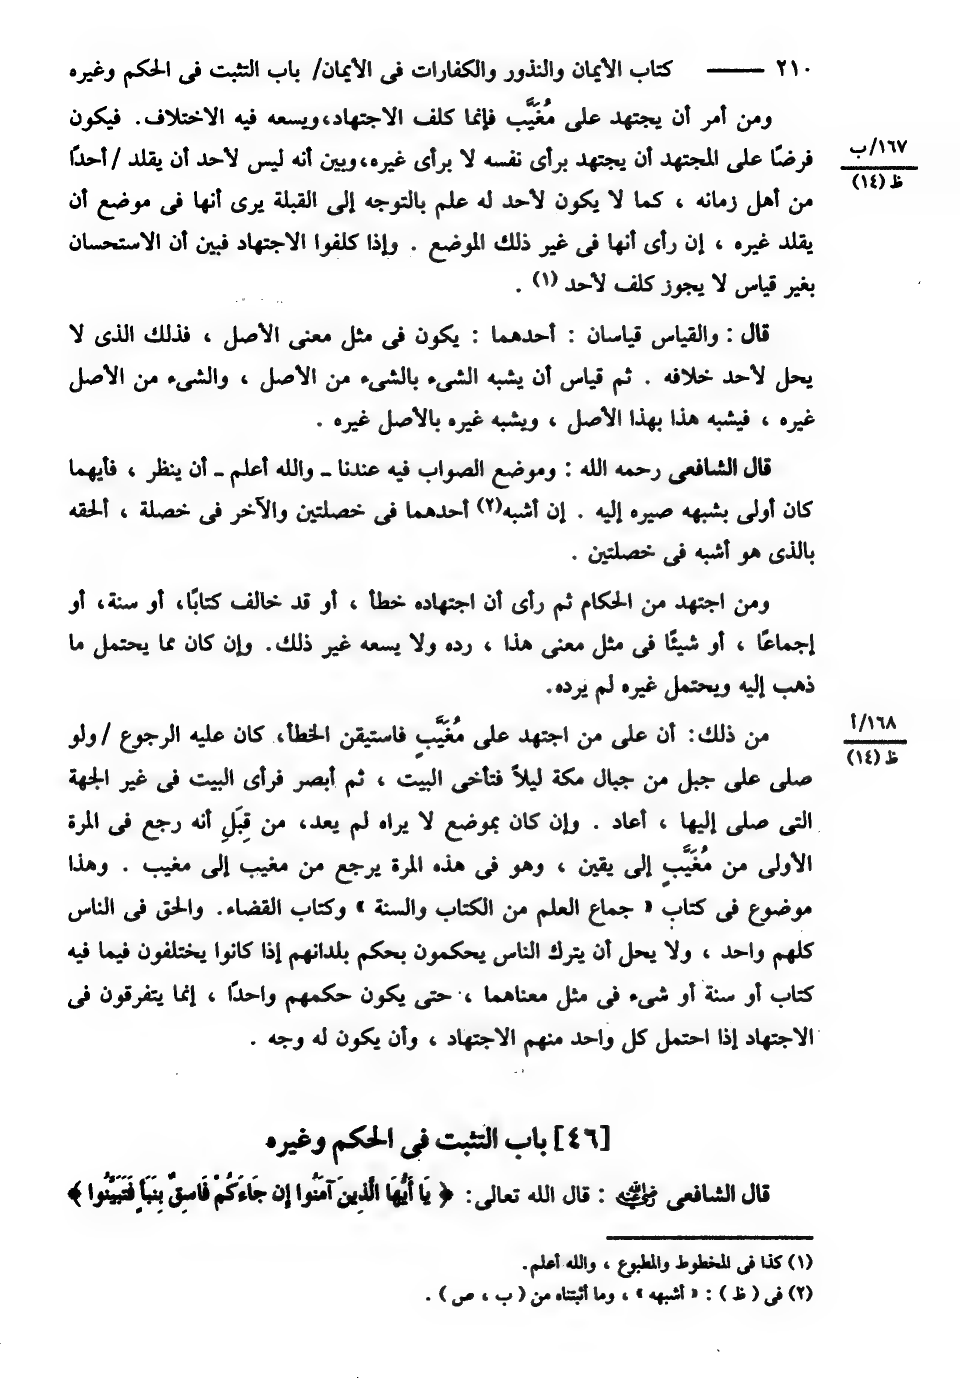 ٢١٠ ــــــ كتاب الأيمان والنذور والكفارات فى الأيمان/ باب التثبت فى الحكم وغيره
ومن أمر أن يجتهد على مُغَيَّب فإنما كلف الاجتهاد،ويسعه فيه الاختلاف. فيكون
فرضًا على المجتهد أن يجتهد برأى نفسه لا برأى غيره،وبين أنه ليس لأحد أن يقلد /أحدًا
١٦٧/ب
ظ (١٤)
من أهل زمانه ، كما لا يكون لأحد له علم بالتوجه إلى القبلة يرى أنها فى موضع أن
يقلد غيره ، إن رأى أنها فى غير ذلك الموضع . وإذا كلفوا الاجتهاد فبين أن الاستحسان
بغير قياس لا يجوز كلف لأحد (١) .
قال : والقياس قياسان : أحدهما : يكون فى مثل معنى الأصل ، فذلك الذى لا
يحل لأحد خلافه . ثم قياس أن يشبه الشىء بالشىء من الأصل ، والشىء من الأصل
غيره ، فيشبه هذا بهذا الأصل ، ويشبه غيره بالأصل غيره .
قال الشافعى رحمه الله : وموضع الصواب فيه عندنا ــ والله أعلم ــ أن ينظر ، فأيهما
كان أولى بشبهه صيره إليه . إن أشبه(٢) أحدهما فى خصلتين والآخر فى خصلة ، ألحقه
بالذى هو أشبه فى خصلتين .
ومن اجتهد من الحكام ثم رأى أن اجتهاده خطأ ، أو قد خالف كتابًا، أو سنة، أو
إجماعًا ، أو شيئًا فى مثل معنى هذا ، رده ولا يسعه غير ذلك. وإن كان مما يحتمل ما
ذهب إليه ويحتمل غيره لم يرده.
من ذلك: أن على من اجتهد على مُغَيَّبٍ فاستيقن الخطأ، كان عليه الرجوع /ولو
١٦٨/أ
ظ (١٤)
صلى على جبل من جبال مكة ليلاً فتأخى البيت ، ثم أبصر فرأى البيت فى غير الجهة
التى صلى إليها ، أعاد . وإن كان بموضع لا يراه لم يعد، من قِبَلِ أنه رجع فى المرة
الأولى من مُغَيَّبٍ إلى يقين ، وهو فى هذه المرة يرجع من مغيب إلى مغيب . وهذا
موضوع فى كتاب « جماع العلم من الكتاب والسنة » وكتاب القضاء. والحق فى الناس
كلهم واحد ، ولا يحل أن يترك الناس يحكمون بحكم بلدانهم إذا كانوا يختلفون فيما فيه
كتاب أو سنة أو شىء فى مثل معناهما ، حتى يكون حكمهم واحدًا ، إنما يتفرقون فى
الاجتهاد إذا احتمل كل واحد منهم الاجتهاد ، وأن يكون له وجه .
[٤٦] باب التثبت فى الحكم وغيره
قال الشافعى رضي الله عنه : قال الله تعالى: ﴿ يَا أَيُّهَا الَّذِينَ آمَنُوا إِن جَاءَكُمْ فَاسِقٌ بِنَبَأٍ فَتَبَيَّنُوا ﴾
(١) كذا فى المخطوط والمطبوع ، والله أعلم.
(٢) فى ( ظ ) : « أشبهه » ، وما أثبتناه من ( ب ، ص ) .